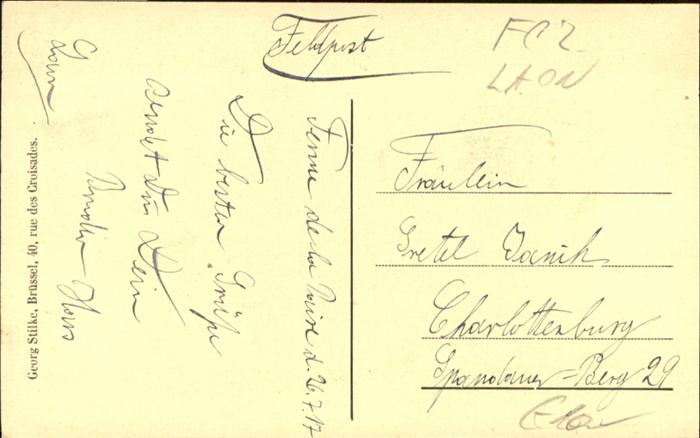 Feldpost
FC 2
LAON
Ferme de la Noire d. 26.7.17
Die besten Grüße
sendet Dir Dein
Hans
Laon
Fräulein
Gretel Janik
Charlottenburg
Spandauer-Berg 29
Georg Stilke, Brüssel, 40, rue des Croisades.